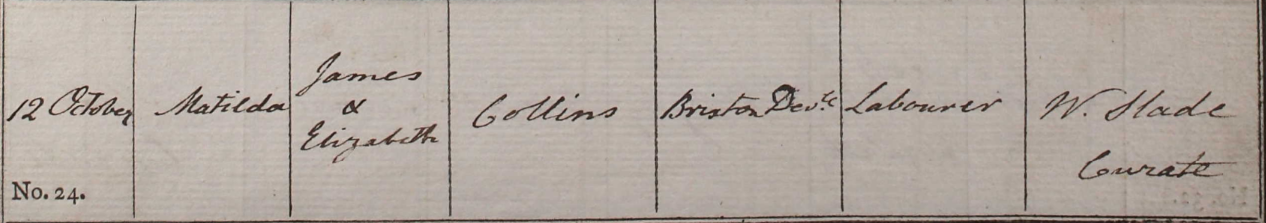 12 October
Matilda
James
&
Elizabeth
Collins
Brixton Dev.ll
Labourer
W. Slade
Curate
No. 24.